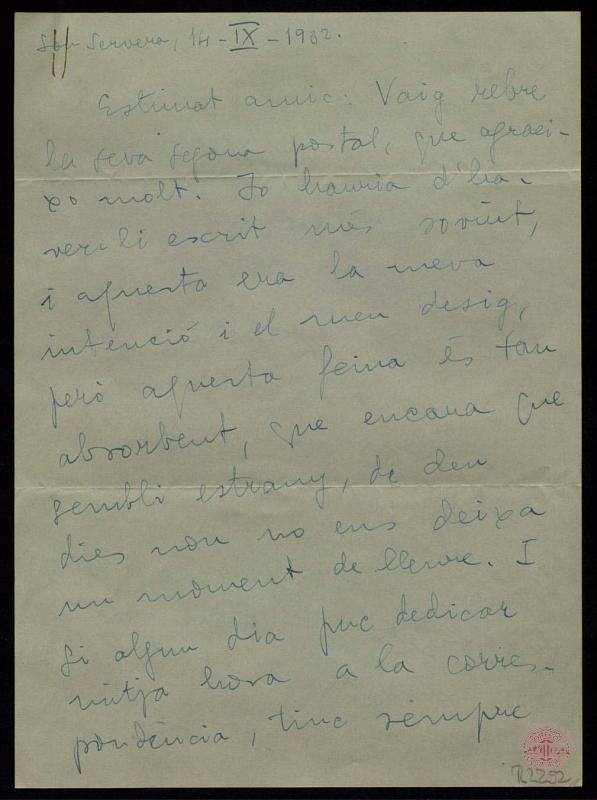 Son Servera, 14-IX-1932.
Estimat amic: Vaig rebre
la seva segona postal, que agraei-
xo molt. Jo hauria d'ha-
ver-li escrit més sovint,
i aquesta era la meva
intenció i el meu desig,
però aquesta feina és tan
absorbent, que encara que
sembli estrany, de deu
dies nou no ens deixa
un moment de lleure. I
si algun dia puc dedicar
mitja hora a la corres-
pondència, tinc sempre